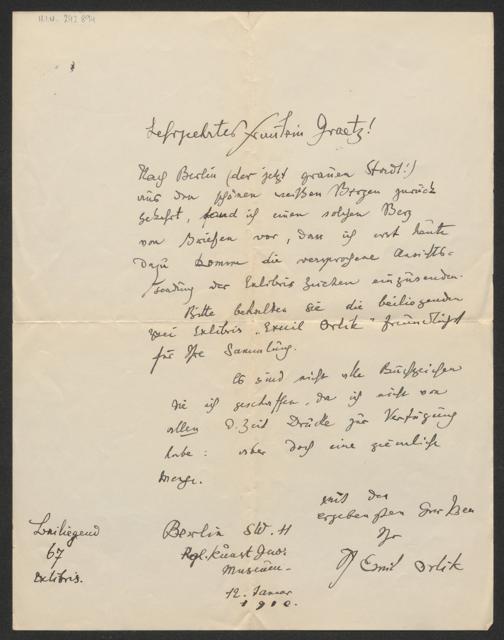 H.I.N. 242 894
Sehrgeehrtes Fräulein Graetz!
Nach Berlin (der jetzt grauen Stadt!)
aus den schönen weißen Bergen zurück
gekehrt, fand ich einen solchen Berg
von Briefen vor, dass ich erst heute
dazu komme die versprochene Ansichts-
sendung der Exlibris Zeichen einzusenden.
Bitte behalten Sie die beiliegenden
zwei Exlibris "Emil Orlik" freundlichst
für Ihre Sammlung.
Es sind nicht alle Buchzeichen
die ich geschaffen, da ich nicht von
allen d. Zeit Drucke zur Verfügung
habe: aber doch eine ziemliche
Menge.
mit den
ergebensten Grüssen
Ihr
Emil Orlik
Beiliegend
67
Exlibris.
Berlin SW. 11
Kgl. Kunst Gew.
Museum.
12. Januar
1910.